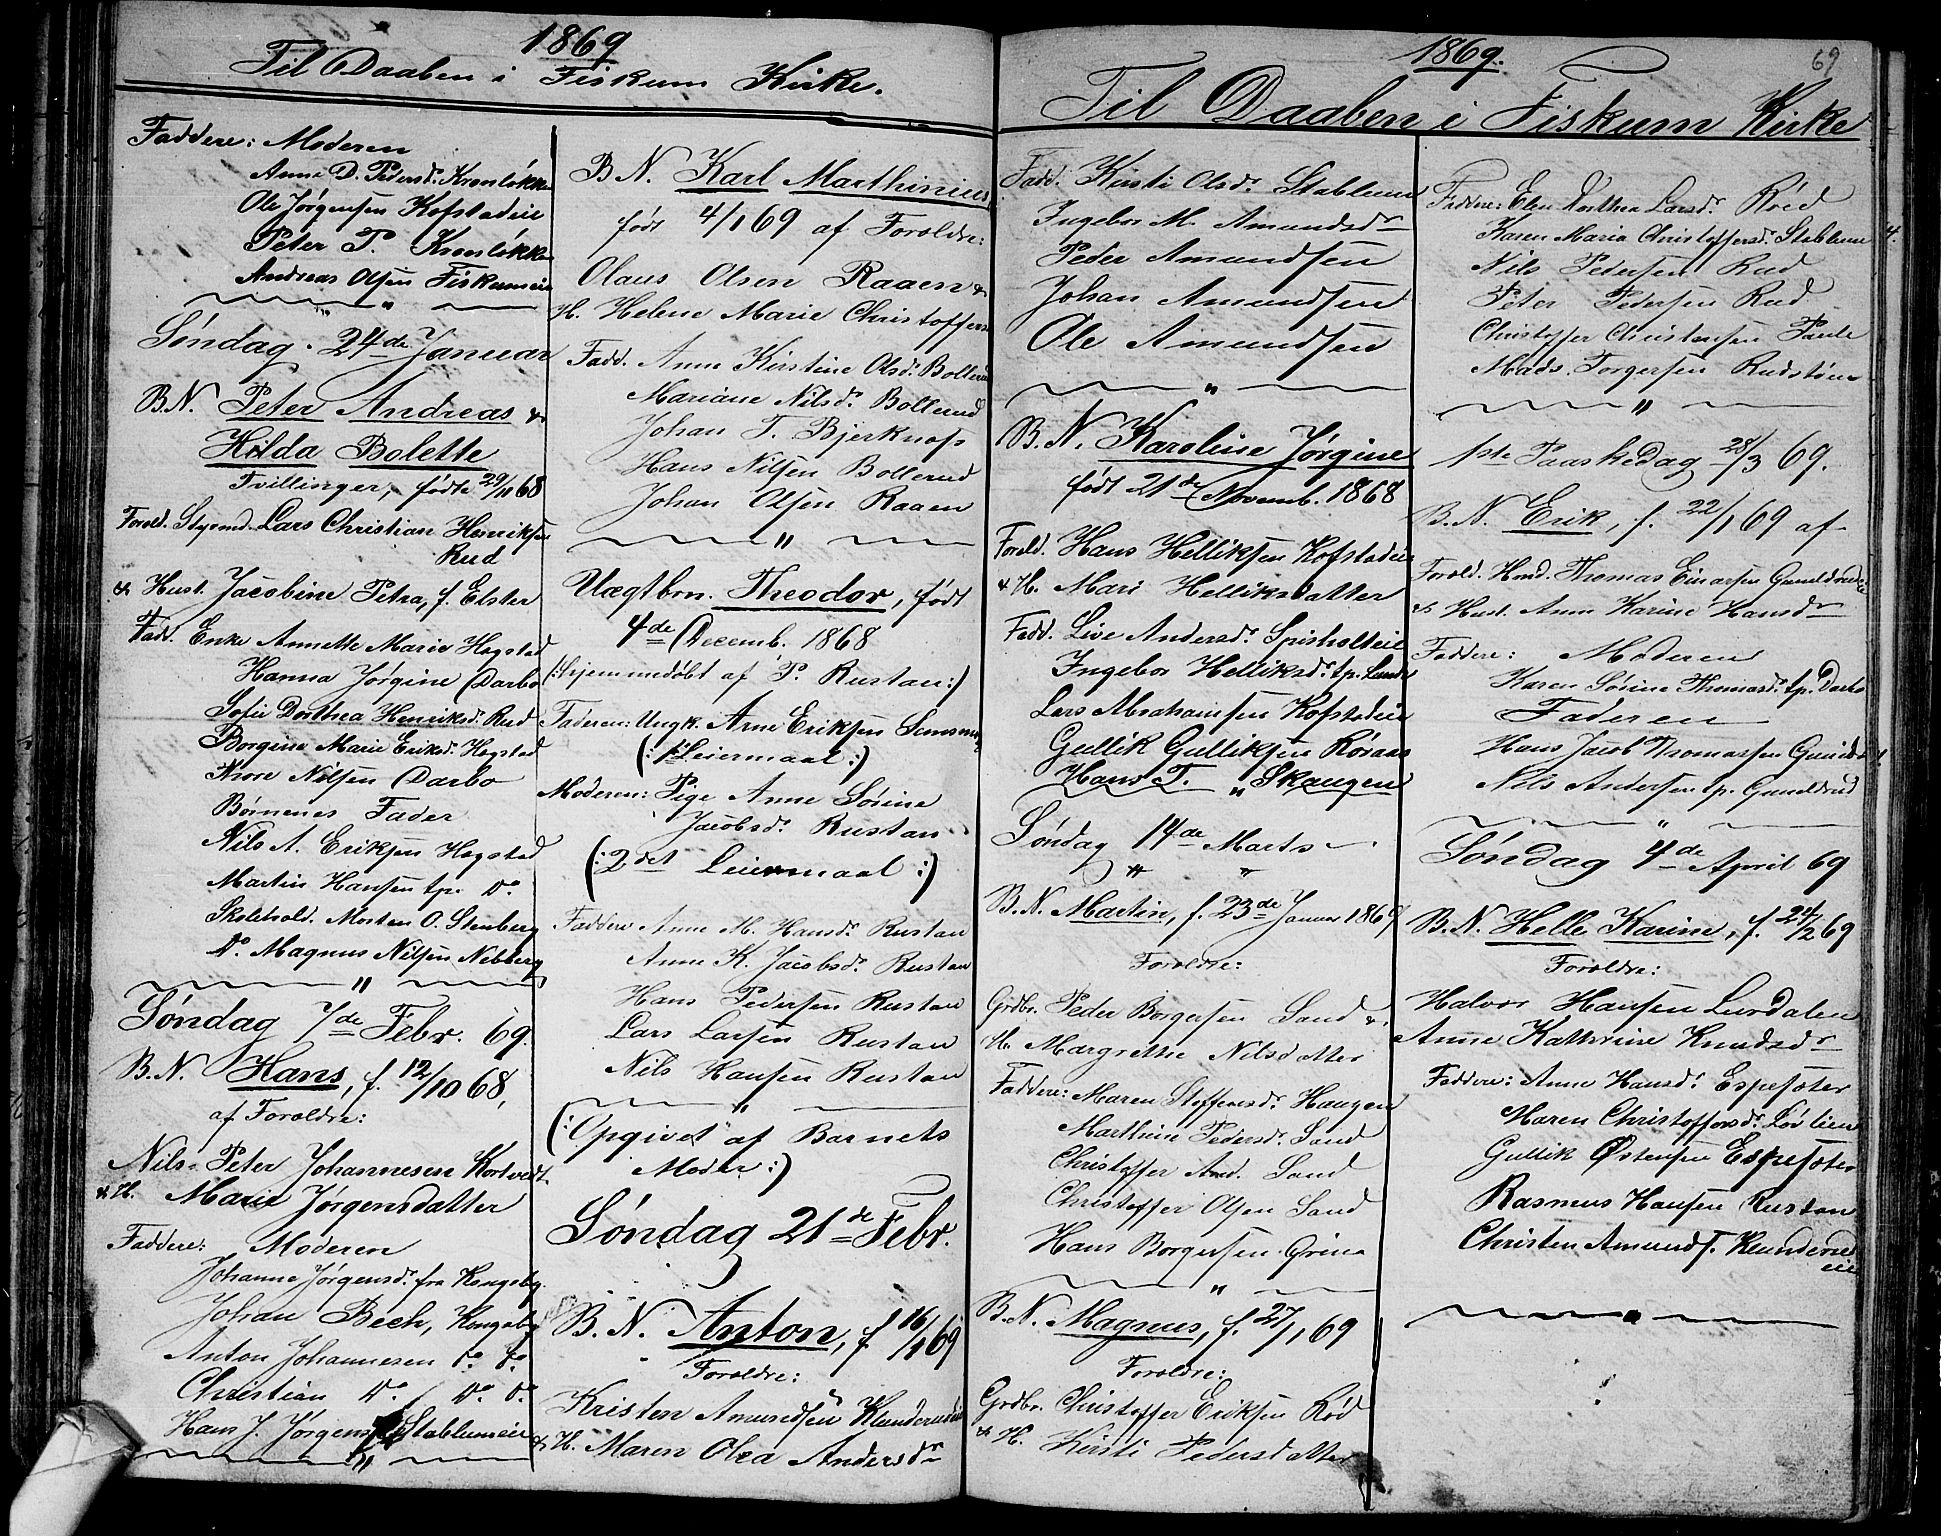 1869
Til Daaben i Fiskum Kirke.
Faddere: Moderen
Anne D. Pedersdr. Kronløkke
Ole Jørgensen Kofstadeie
Peter P. Kronløkke
Andreas Olsen Fiskumeie
"
Søndag 24de Januar
B.N. Peter Andreas &
Hilda Bolette
Tvillinger, fødte 29/11 68
Forold. Styrmd. Lars Christian Henriksen
Rud
& Hust. Jacobine Petra, f. Elster
Fad. Enke Annette Marie Hogstad
Hanna Jørgine Darbo
Sofie Dorthea Henriksdr. Rud
Borgine Marie Eriksdr. Hogstad
Nore Nilsen Darbo
Børnenes Fader
Nils A. Eriksen Hogstad
Martin Hansen tp. Do
Skolehold. Morten O. Stenberg
Do. Magnus Nilsen Nebberg
"
Søndag 7de Febr. 69.
B.N. Hans, f. 12/10 68,
af Foroldre:
Nils Peter Johannesen Kortvedt
& H. Marie Jørgensdatter
Faddere: Moderen
Johanne Jørgensdr. fra Kongsbg.
Johan Bech, Kongsbg
Anton Johannesen Do Do
Christian Do. Do. Do.
Hans J. Jørgens Stablumeie
"
B.N. Karl Marthinius,
født 4/1 69 af Foroldre:
Olaus Olsen Raaen &
H. Helene Marie Christoffers
Fadd. Anne Kirstine Olsdr. Bollerud
Mariane Nilsdr. Bollerud
Johan T. Bjerknæs
Hans Nilsen Bollerud
Johan Olsen Raaen
"
Uægtbrn. Theodor, født
4de Decemb. 1868
(:hjemmedøbt af P. Rustan:)
Faderen: Ungk. Arne Eriksen
(: 1ste Leiermaal :)
Moderen: Pige Anne Sørine
Jacobsdr. Rustan
(: 2det Leiermaal :)
Faddere Anne M. Hansdr. Rustan
Anne K. Jacobsdr. Rustan
Hans Pedersen Rustan
Lars Larsen Rustan
Nils Hansen Rustan
"
(: Opgivet af Barnets
Moder :)
Søndag 21de Febr.
B.N. Anton, f 16/1 69
Foroldre:
Kristen Amundsen Klunderudeie
& H. Maren Olea Andersdr
1869.
69
Til Daaben i Fiskum Kirke
Fadd. Kirsti Olsdr. Stablum
Ingebor M. Amundsdr
Peder Amundsen
Johan Amundsen
Ole Amundsen
"
B.N. Karoline Jørgine
født 21de Novemb. 1868
Forold. Hans Helliksen Kofstadeie
& H. Mari Helliksdatter
Fadd. Live Andersdr. Spisholteie
Ingebor Helliksdr. tp. Lunde
Lars Abrahamsen Kofstadeie
Gullik Gulliksen Røraas
Hans T. " Skaugen
Søndag 14de Marts
" "
B.N. Martin, f. 23de Januar 1869
Foroldre:
Grdbr. Peder Borgersen Sand &
H. Margrethe Nilsdatter
Faddere: Maren Stoffersdr. Haugen
Marthine Pedersdr. Sand
Christoffer And. Sand
Christoffer Olsen Sand
Hans Borgersen Grina
"
B.N. Magnus, f. 27/1 69
Foroldre:
Grdbr. Christoffer Eriksen Rød
& H. Kirsti Pedersdatter
Faddere: Elen Dorthea Larsdr. Røed
Karen Maria Christoffersdr. Stablum
Nils Pedersen Rud
Peter Pedersen Rud
Christoffer Christensen Paule
Mads Torgersen Rudstøen
"
1ste Paaskedag 28/3 69.
B.N. Erik, f. 22/1 69 af
Forold. Hmd. Thomas Einarsen Gunildrud
& Hust. Anne Karine Hansdr
Faddere: Moderen
Karen Sørine Thomasdr. tp. Darbo
Faderen
Hans Jacob Thomassen Gunildrud
Nils Andersen tp. Gunildrud
"
Søndag 4de April 69
B.N. Helle Karine, f. 24/2 69
Foroldre:
Halvor Hansen Lurdalen
Anne Kathrine Knudsdr
Faddere: Anne Hansdr. Espesøter
Maren Christoffersdr. Løvlien
Gullik Østensen Espesøter
Rasmus Hansen Rustan
Christen Amunds. Klunderud
eie